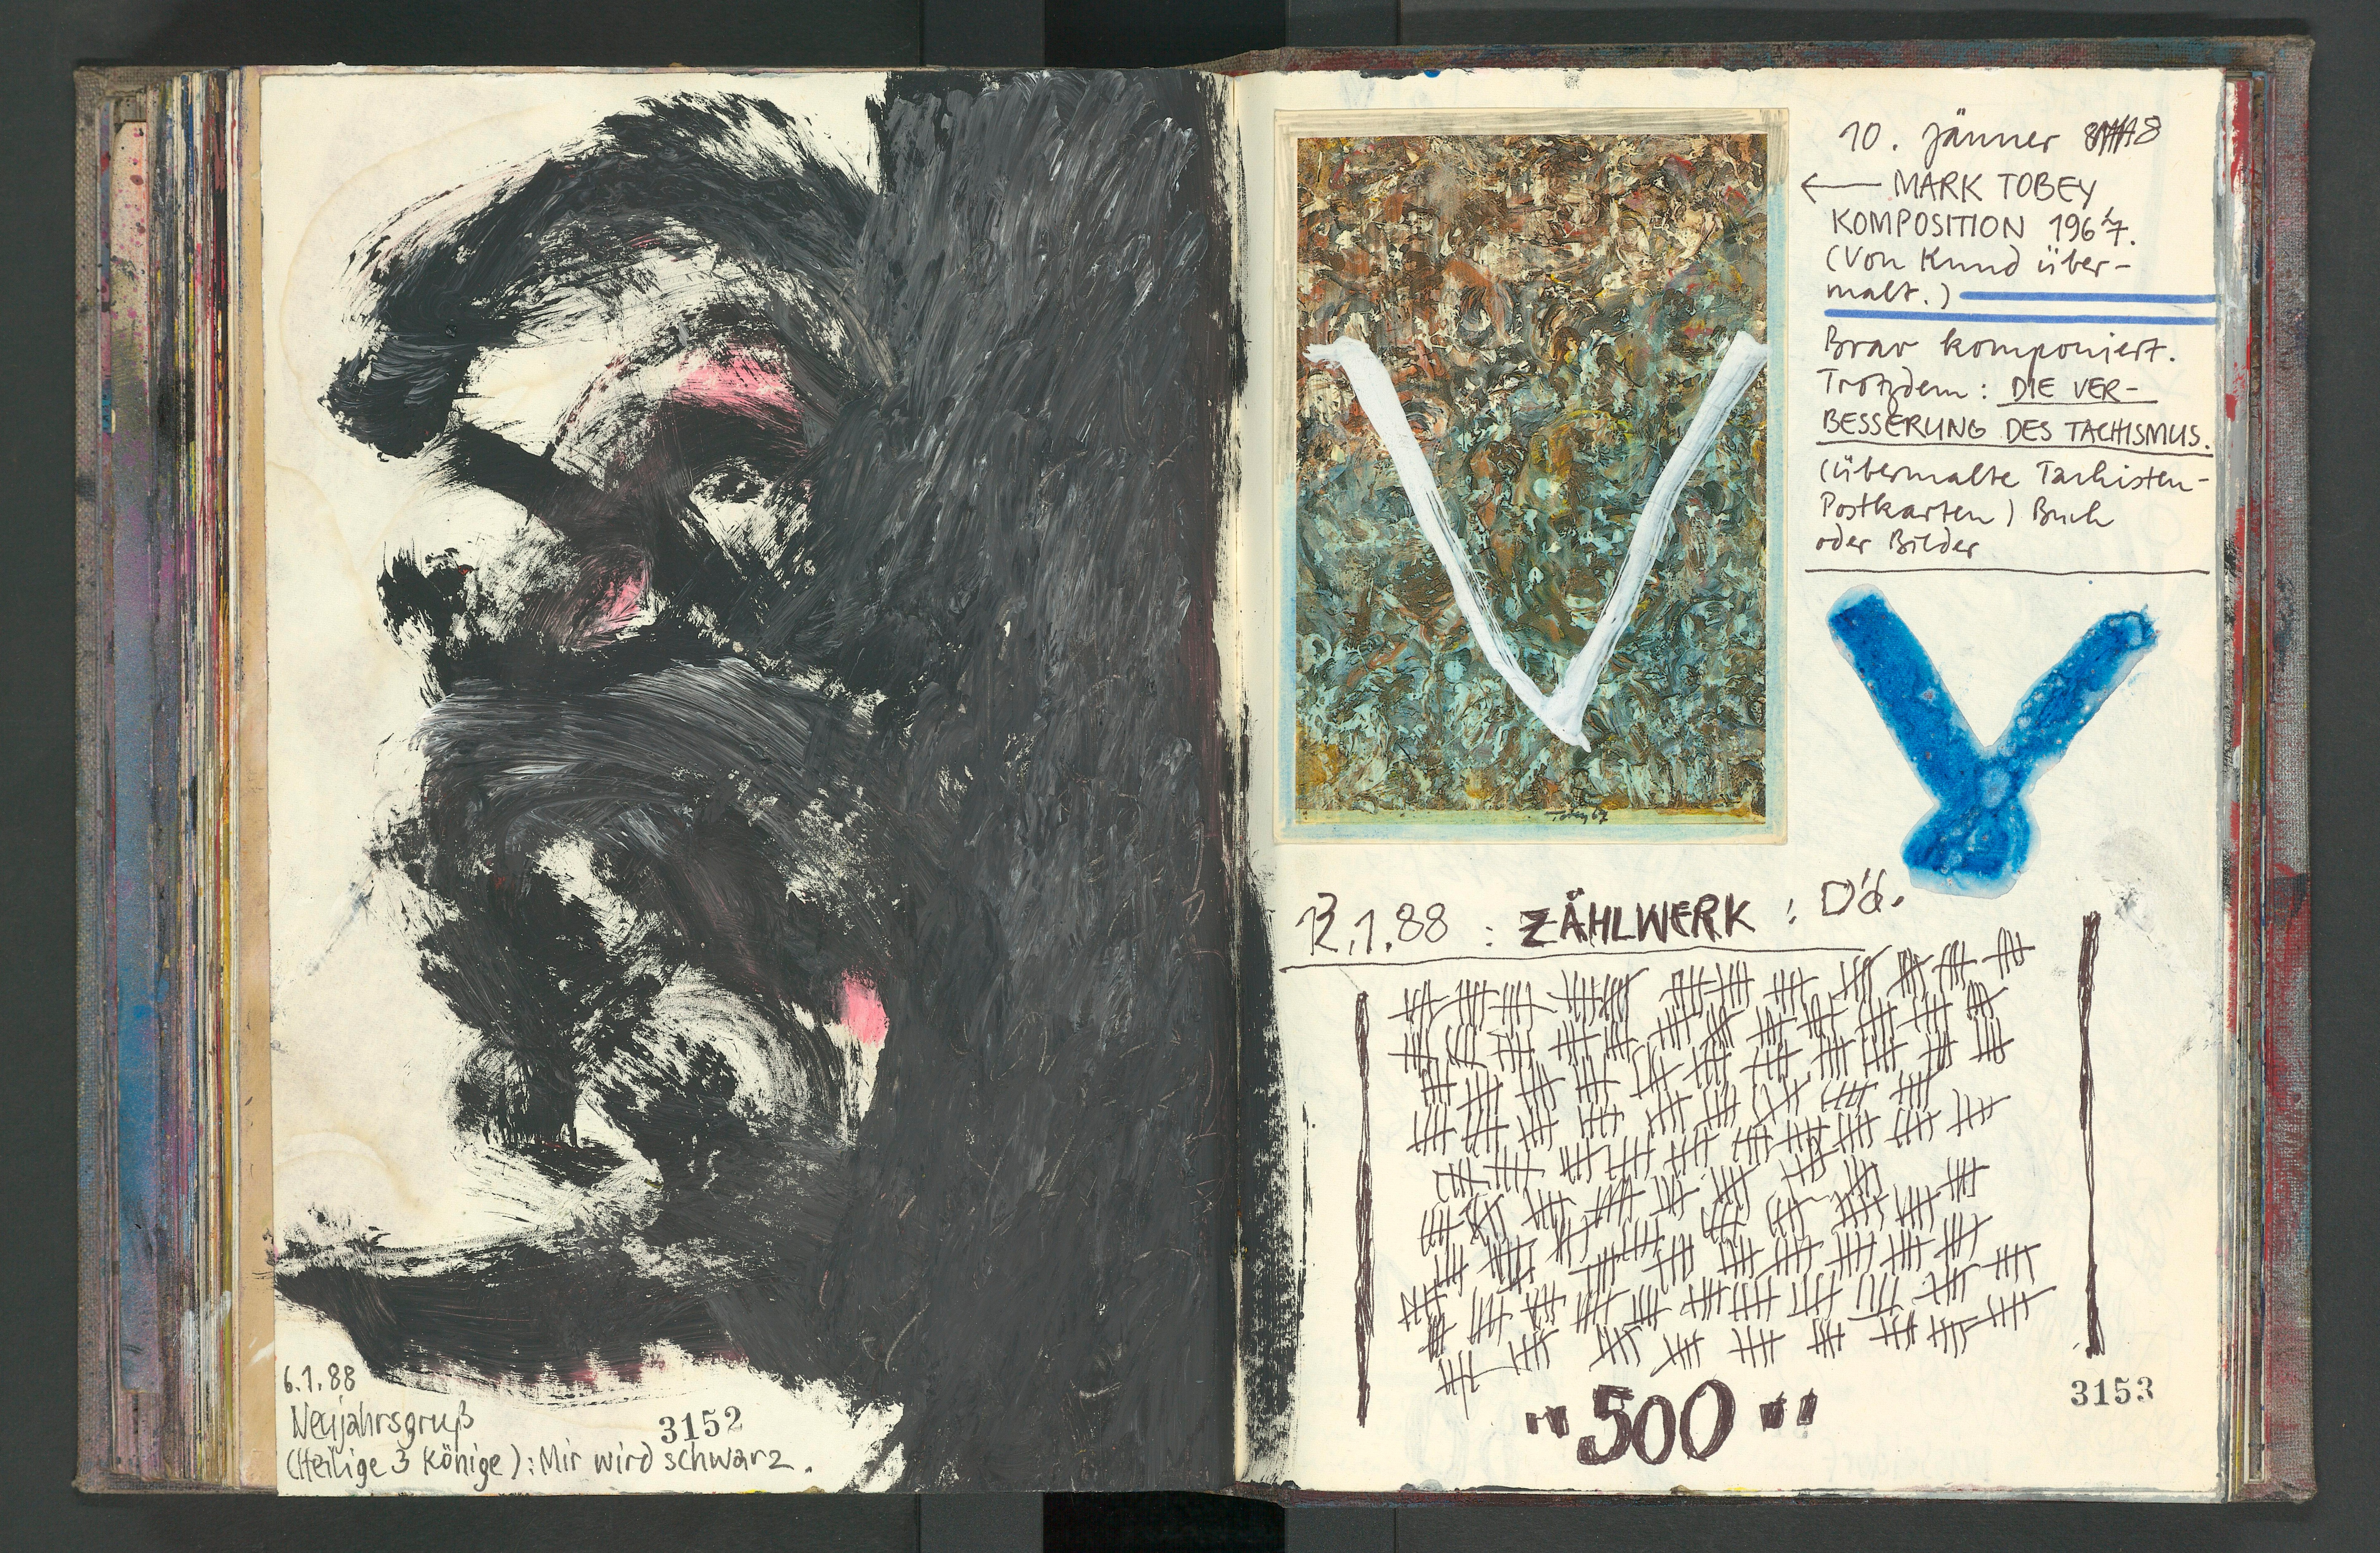 6.1.88
Neujahrsgruß
3152
(Heilige 3 Könige): Mir wird schwarz.
10. Jänner
← MARK TOBEY
KOMPOSITION 1967.
(Von Kund über-
malt.)
Brav komponiert.
Trotzdem: DIE VER-
BESSERUNG DES TACHISMUS.
(übermalte Tachisten-
Postkarten) Buch
oder Bilder
Tobey 67
.1.88 : ZÄHLWERK :
"500"
3153